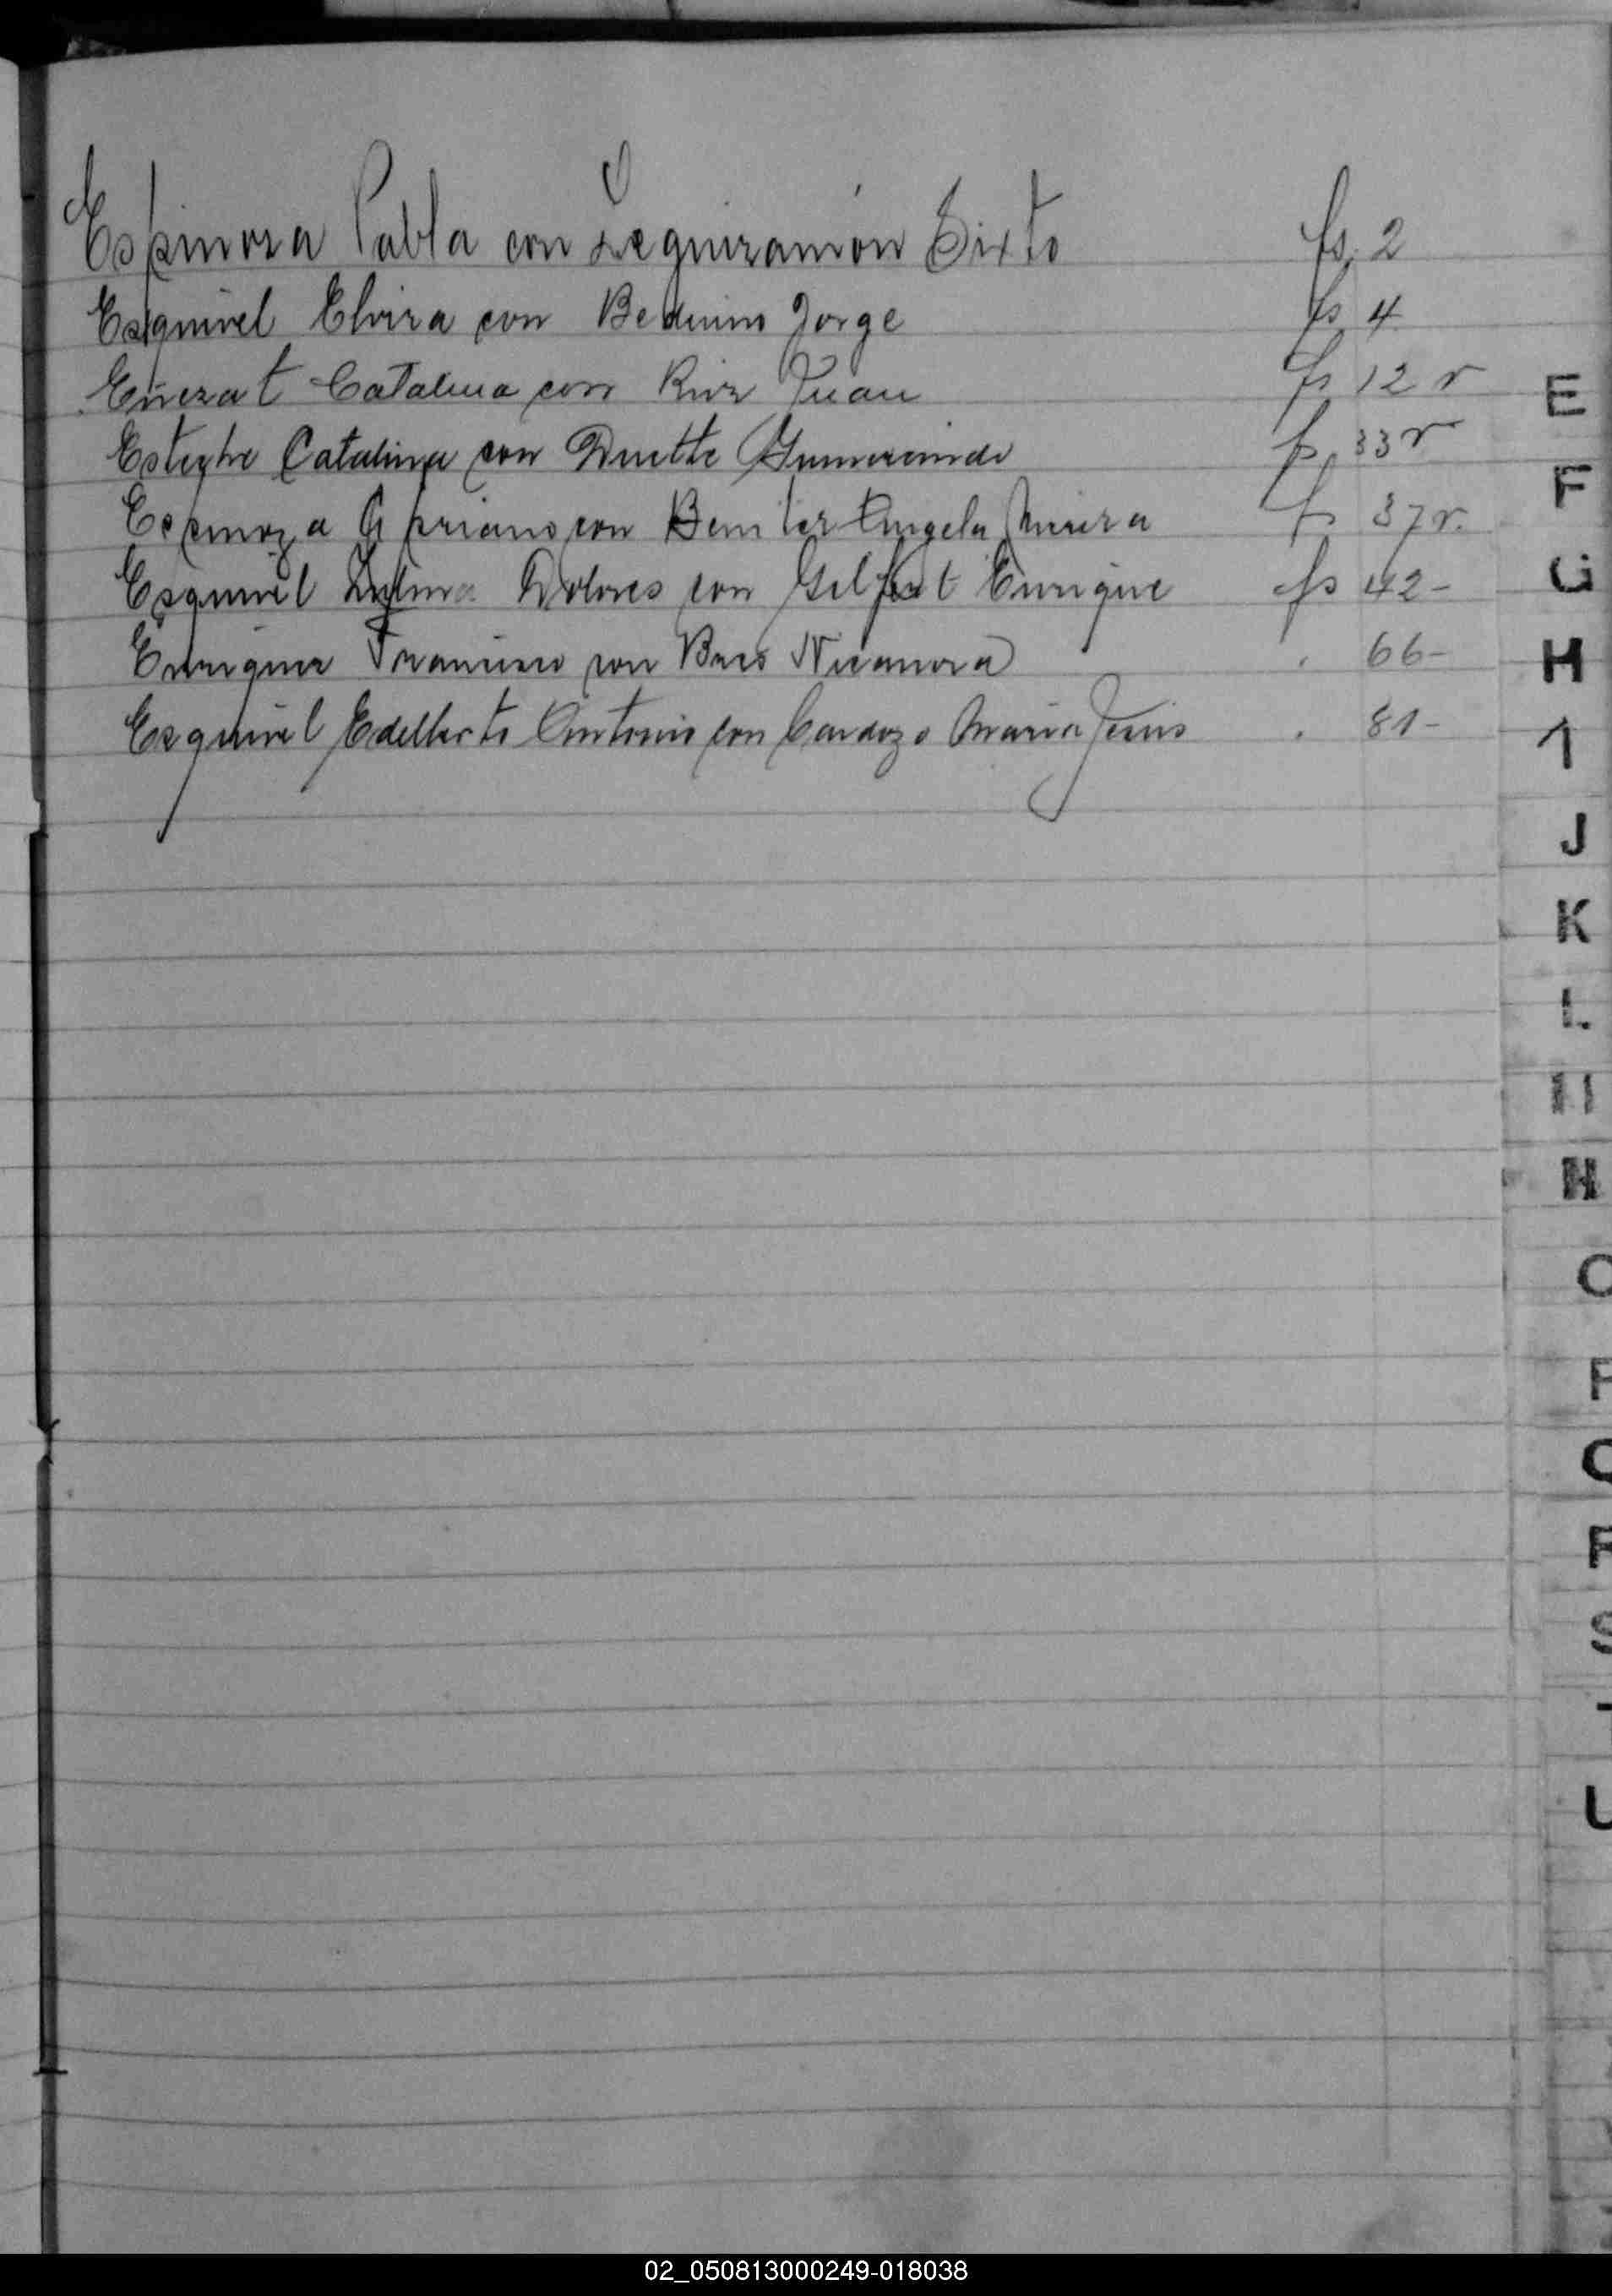 Espinoza Pabla con Leguizamón Sixto fs. 2
Esquivel Elvira con Jorge fs 4
Catalina con Juan fs 12 v
Catalina con Duette Gumercindo fs 33 v
Espinoza Cipriano con Benitez Angela fs 37 v.
Esquivel Dolores con Enrique fs 42-
Enriquez Francisco con Baez Nicanora 66-
Esquivel Edelberto Antonio con Cardozo Maria Jesus 81-
E
F
G
H
1
J
K
L
N
O
P
Q
R
S
T
U
02_050813000249-018038